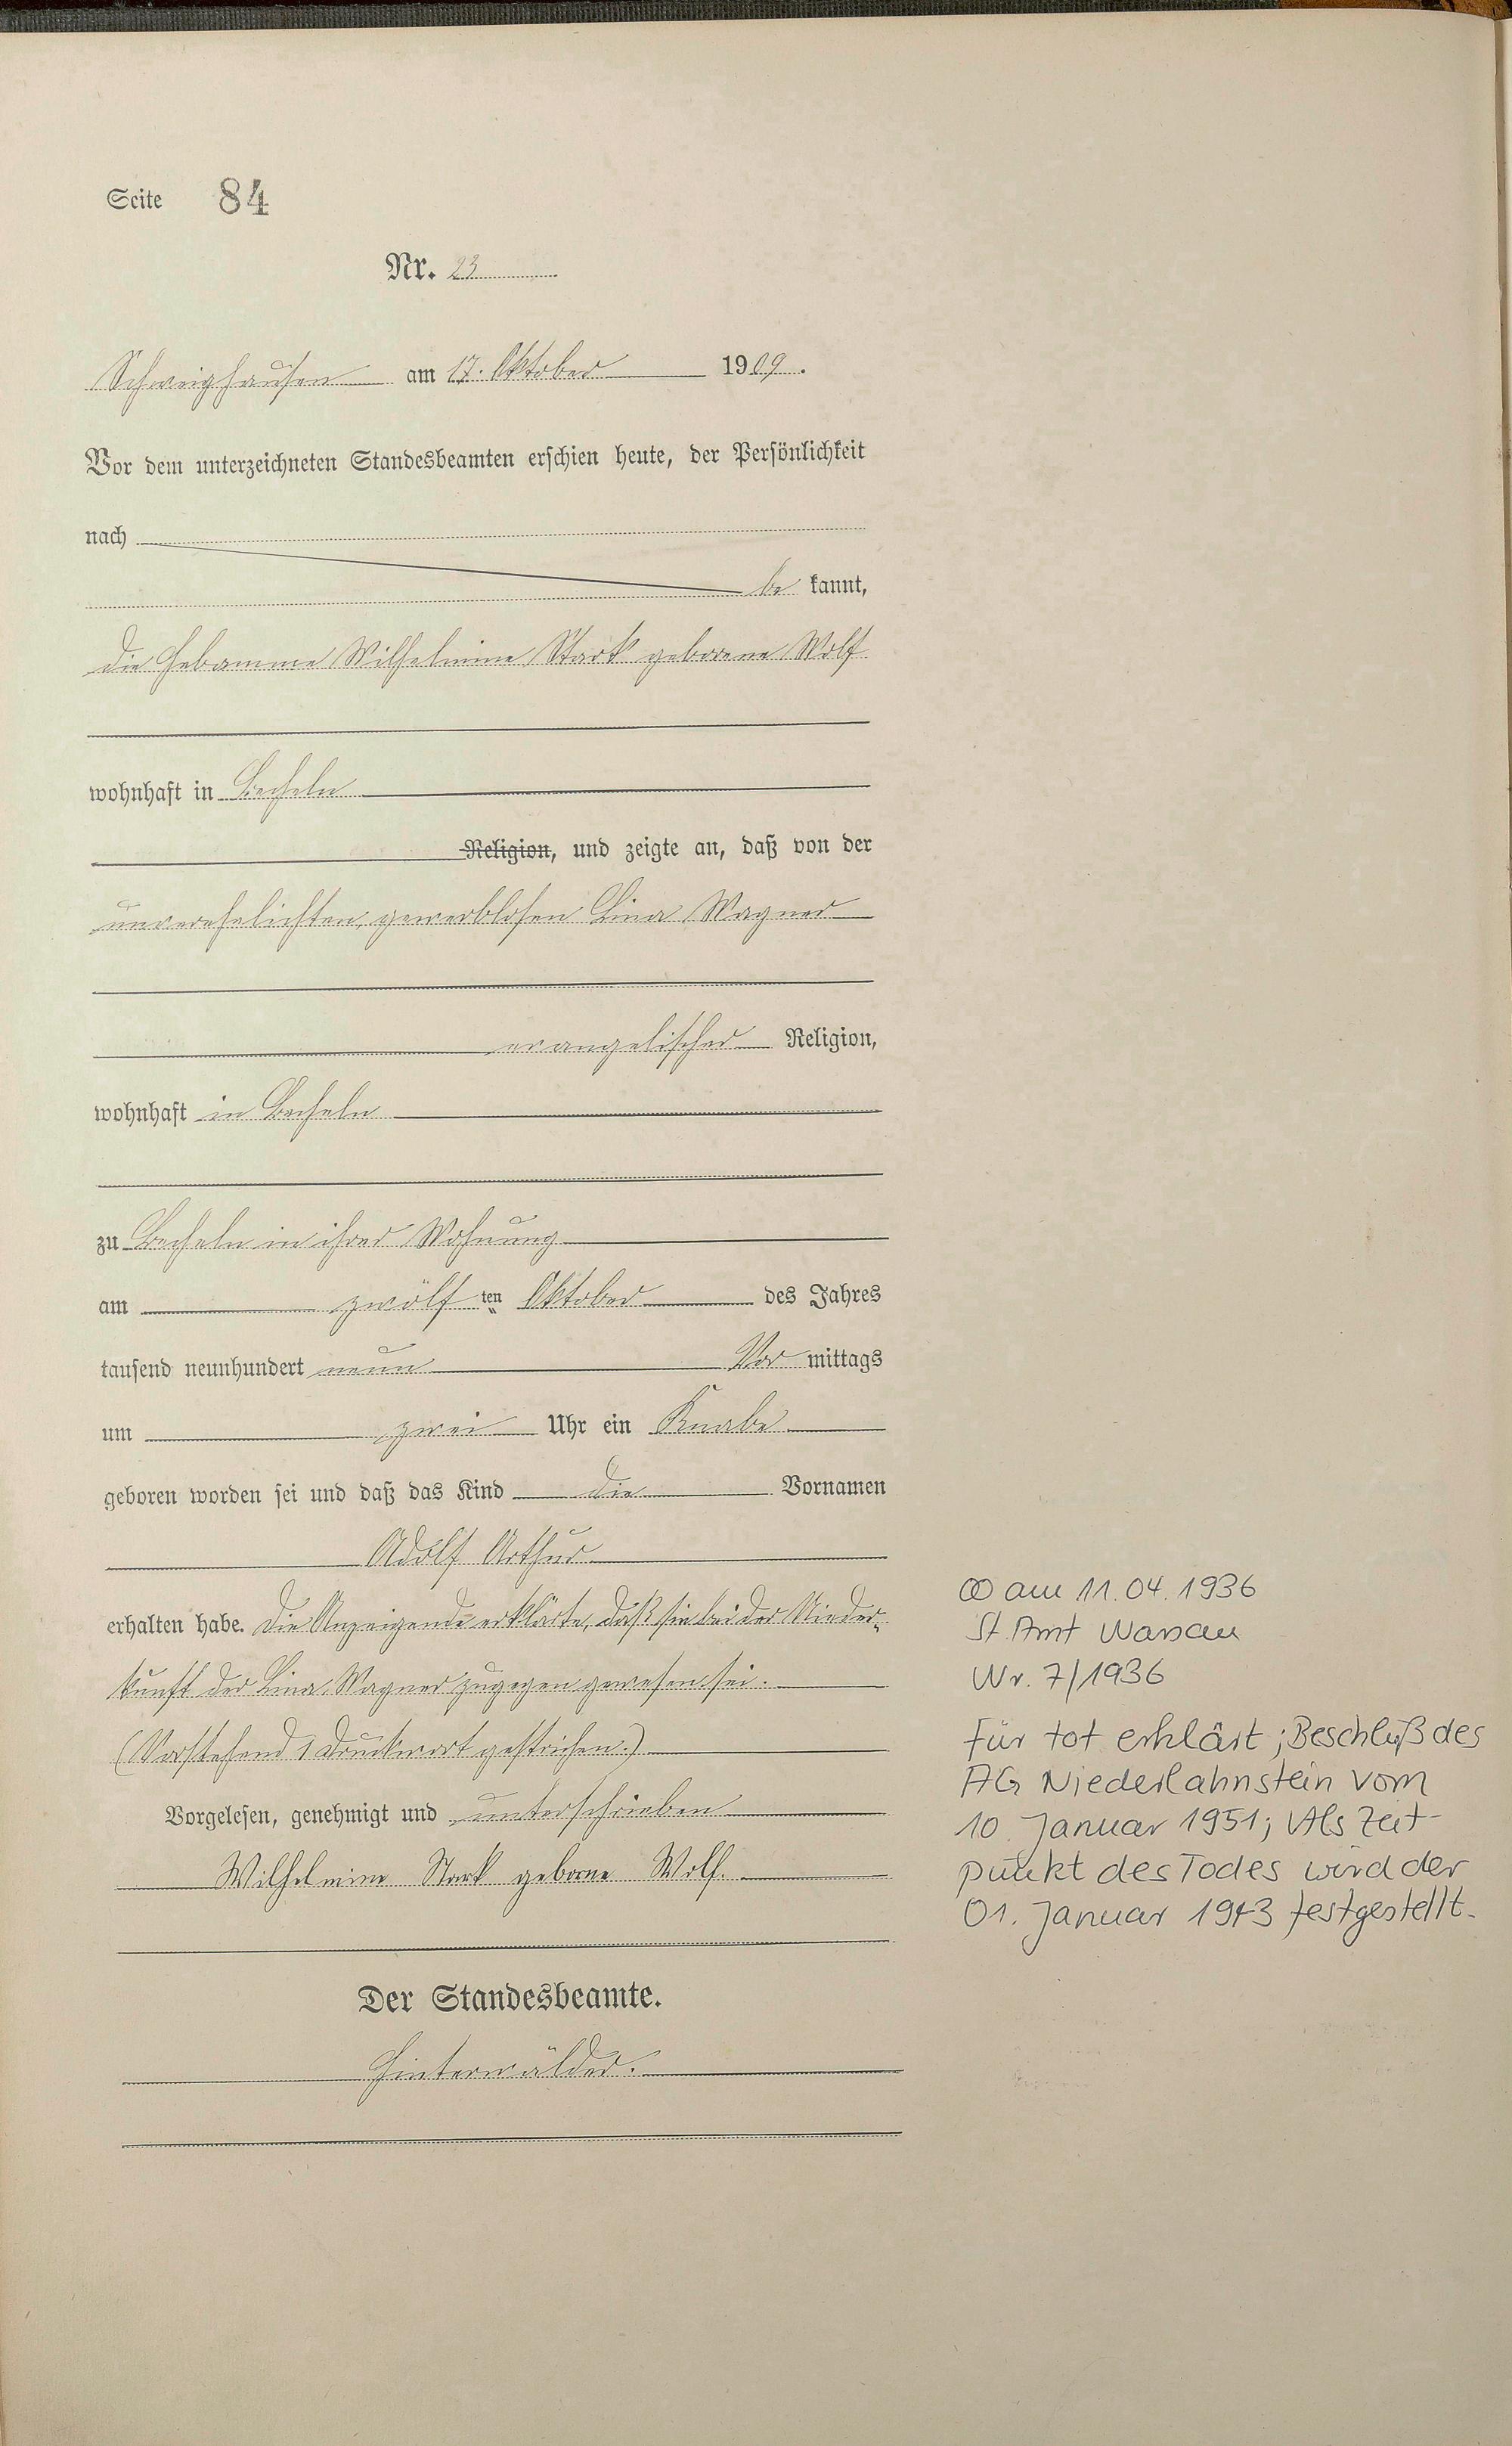 Seite 84
Nr. 23
Schweighausen am 17. Oktober 1909.
Vor dem unterzeichneten Standesbeamten erschien heute, der Persönlichkeit
nach
be kannt,
die Hebamme Wilhelmine Stark geborene Wolf
wohnhaft in Becheln
Religion, und zeigte an, daß von der
unverehelichten, gewerblosen Lina Wagner
evangelischer Religion,
wohnhaft in Becheln
zu Becheln in ihrer Wohnung
am zwölf ten Oktober des Jahres
tausend neunhundert neun Vor mittags
um zwei Uhr ein Knabe
geboren worden sei und daß das Kind die Vornamen
Adolf Arthur
erhalten habe. Die Anzeigende erklärte, daß sie bei der Nieder-
kunft der Lina Wagner zugegen gewesen sei.
(Vorstehend 1 Druckwort gestrichen.)
Vorgelesen, genehmigt und unterschrieben
Wilhelmine Stark geborne Wolf.
Der Standesbeamte.
Hinterwälder.
∞ am 11.04.1936
St. Amt
Nr. 7/1936
Für tot erklärt; Beschluß des
AG Niederlahnstein vom
10. Januar 1951; Als Zeit-
punkt des Todes wird der
01. Januar 1943 festgestellt.